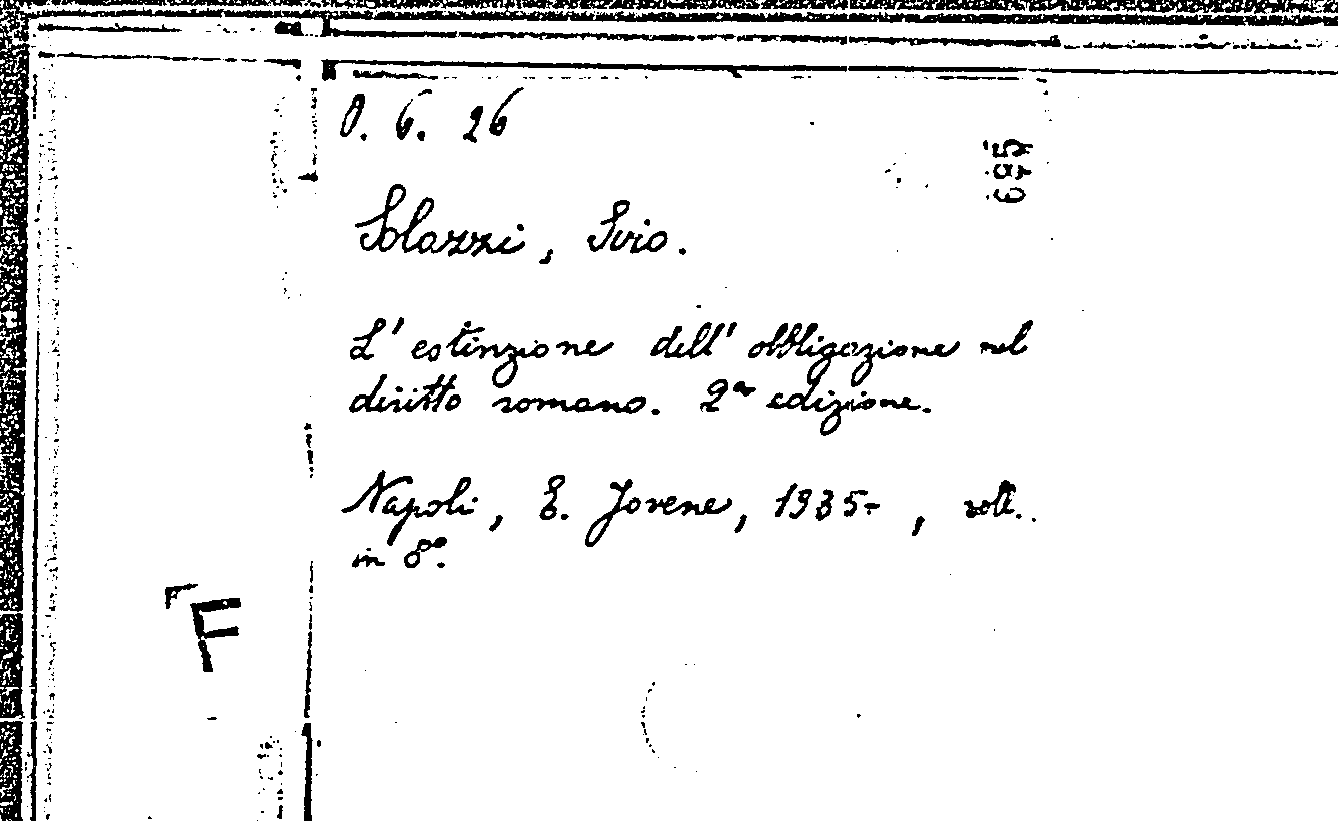 O. 6. 26
Solazzi, Sirio.
L'estinzione dell'obbligazione nel
diritto romano. 2ª edizione.
Napoli, E. Jovene, 1935- , voll.
in 8°.
F